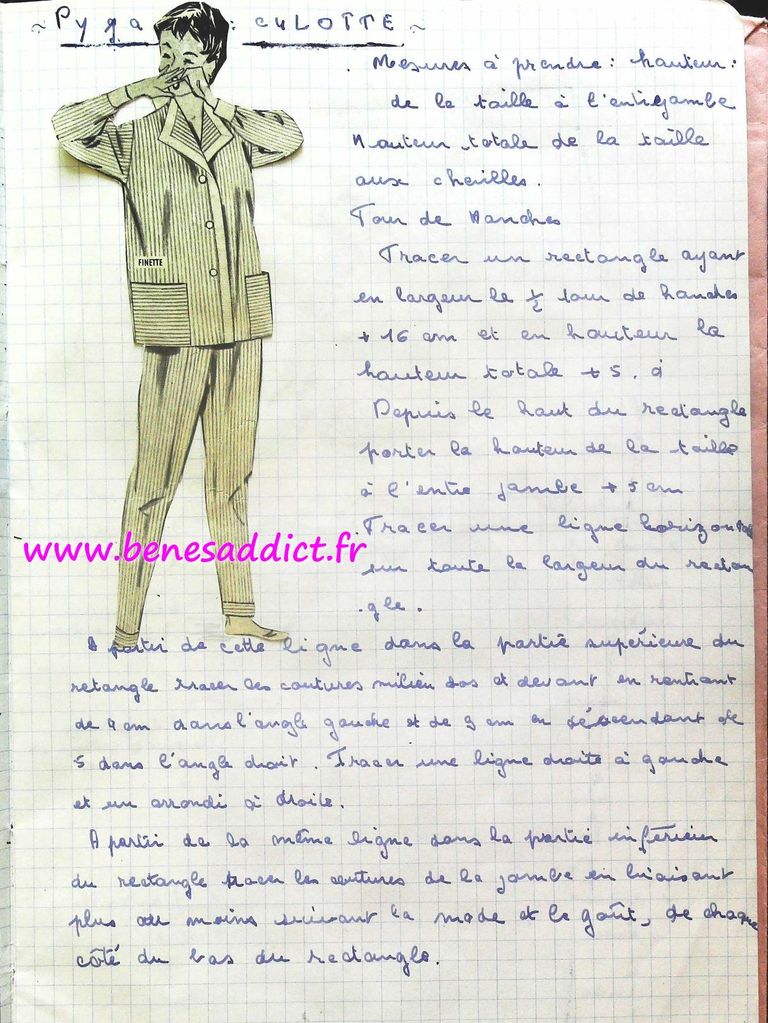 ~ Pyja : CULOTTE ~
Mesures à prendre : hauteur :
de la taille à l'entrejambe
Hauteur totale de la taille
aux chevilles.
Tour de Hanches
Tracer un rectangle ayant
en largeur le ½ tour de hanches
+ 16 cm et en hauteur la
hauteur totale + 5.
Depuis le haut du rectangle
porter la hauteur de la taille
à l'entre jambe + 5 cm
FINETTE
Tracer une ligne horizontale
www.benesaddict.fr
sur toute la largeur du rectan
.gle.
A partir de cette ligne dans la partie supérieure du
retangle tracer les coutures milieu dos et devant en rentrant
de 4 cm dans l'angle gauche et de 9 cm en descendant de
5 dans l'angle droit. Tracer une ligne droite à gauche
et un arrondi à droite.
A partir de la même ligne dans la partie inférieur
du rectangle tracer les coutures de la jambe en biaisant
plus ou moins suivant la mode et le goût, de chaque
côté du bas du rectangle.